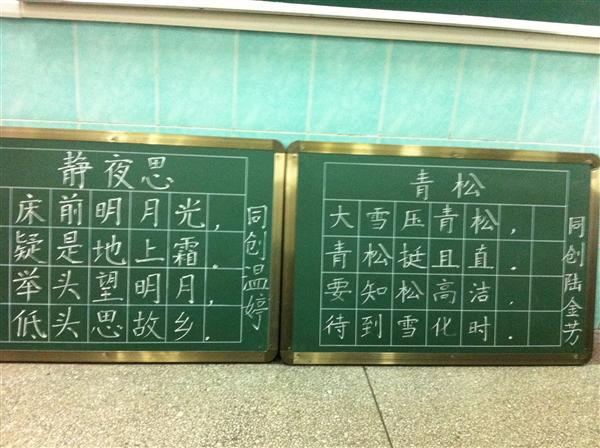 静夜思
床前明月光，
疑是地上霜．
举头望明月，
低头思故乡．
同创温婷
青松
大雪压青松，
青松挺且直．
要知松高洁，
待到雪化时．
同创陆金芳